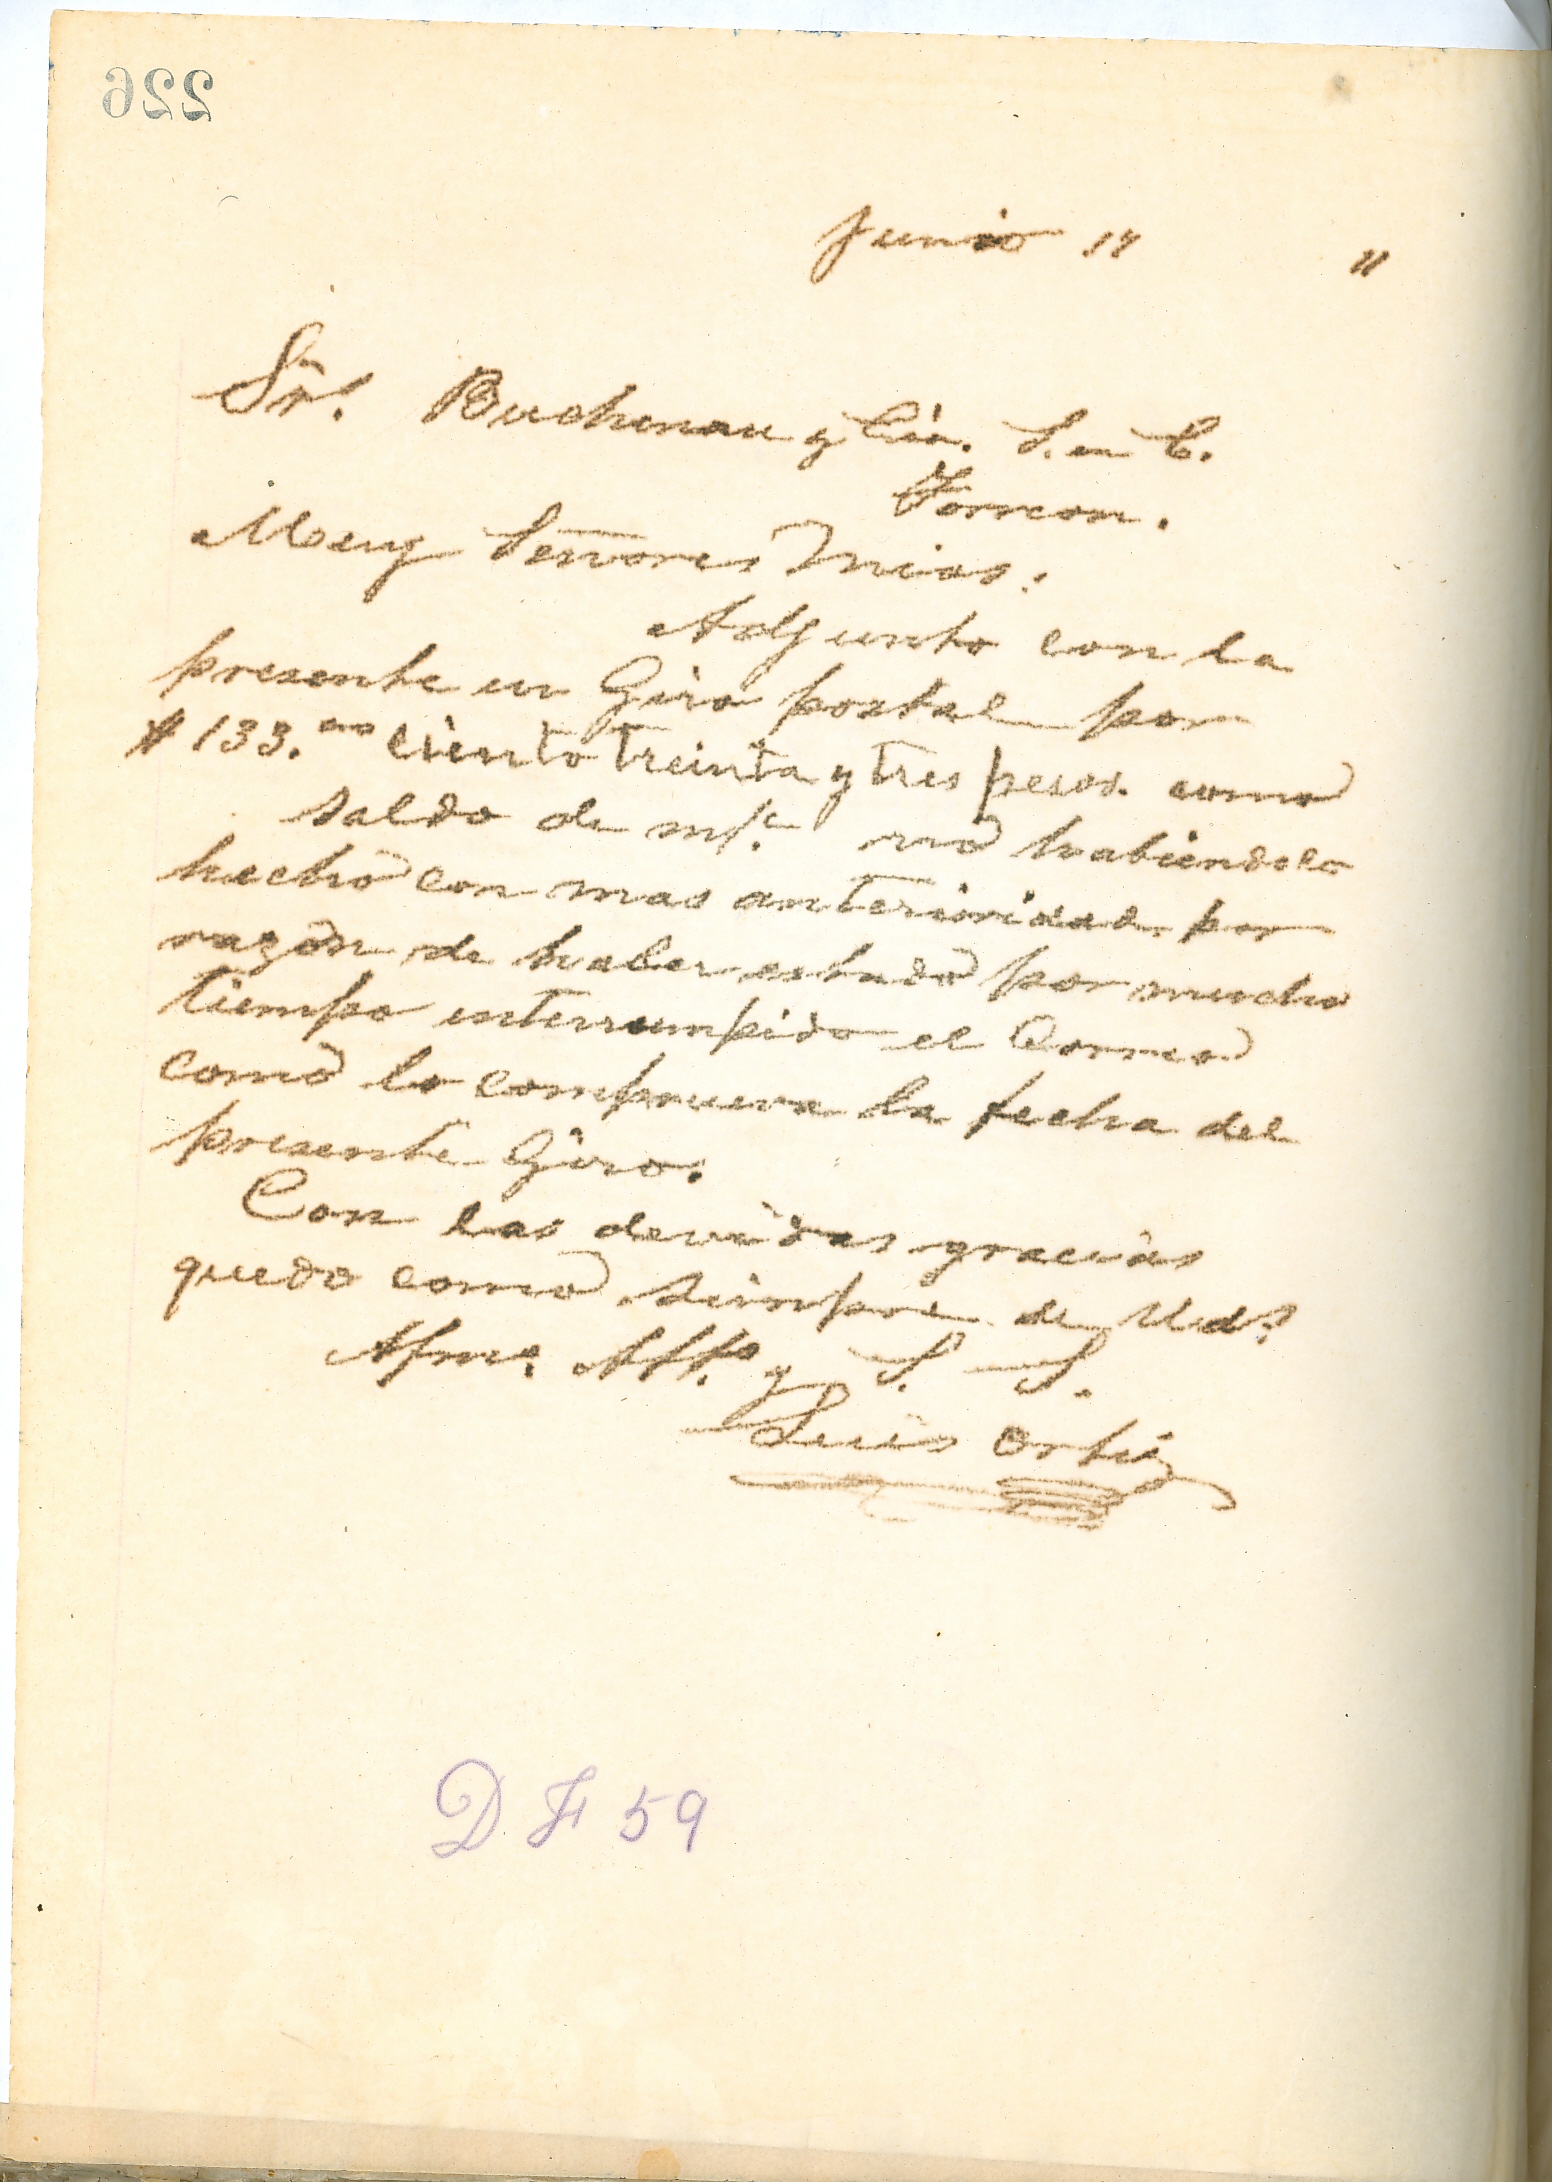 226
Junio 14 11
Sr. Buchenau y Cia. S. en C.
Torreon.
Muy Señores Mios:
Adjunto con la
presente un Giro postal por
$133.00 Ciento Treinta y Tres pesos. como
saldo de m/c. no habiendolo
hecho con mas anterioridad por
razón de haber estado por mucho
tiempo interrumpido el Correo
como lo comprueva la fecha del
presente Giro.
Con las devidas gracias
quedo como siempre de Uds.
Afmo. Atto. y S. S.
Luis Ortiz
D. F 59